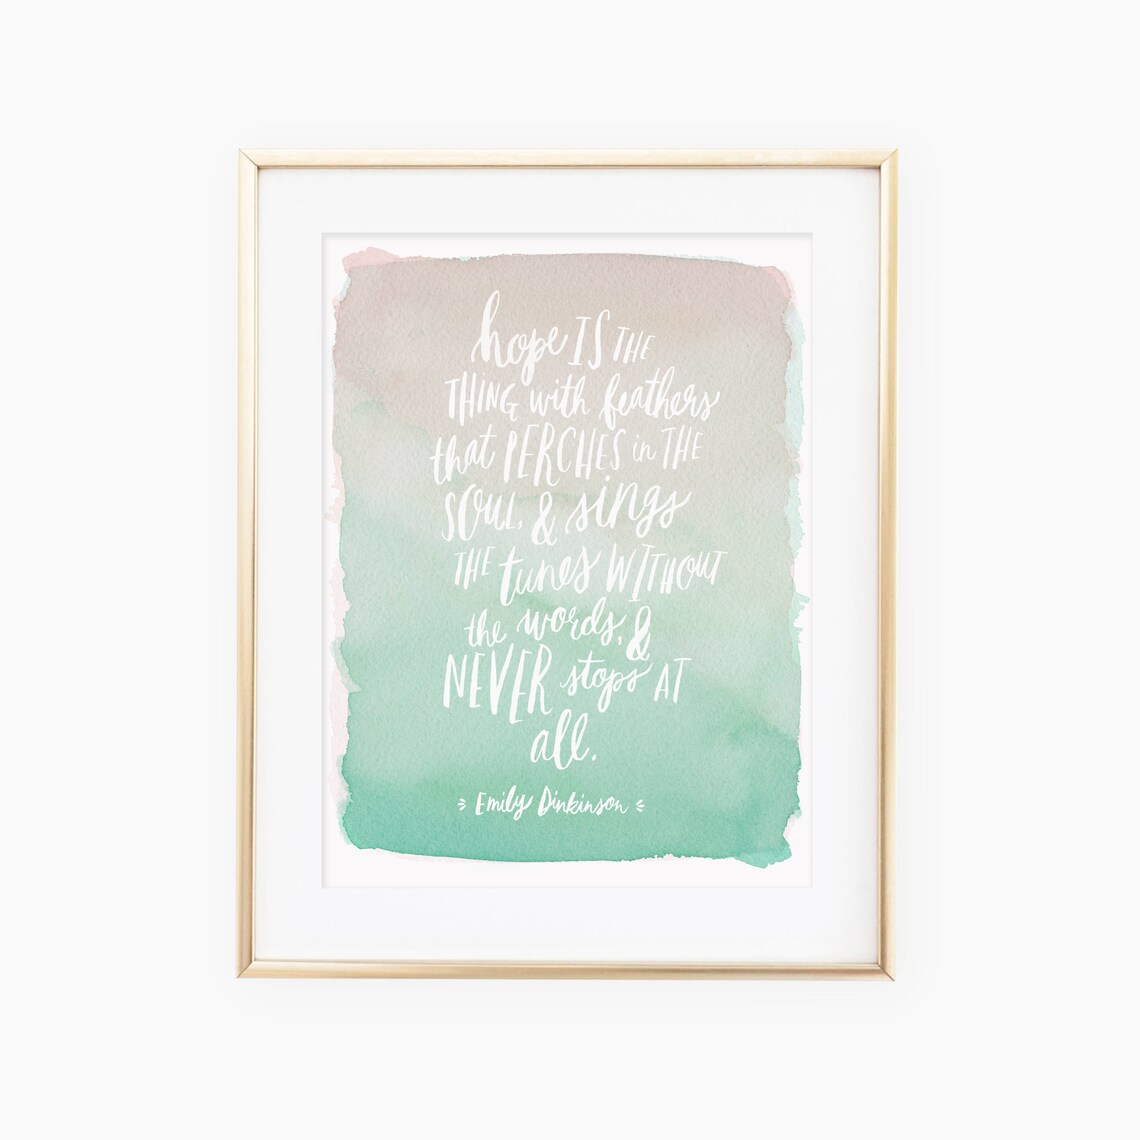 hope IS THE
THING with feathers
that PERCHES in THE
SOUL, & sings
THE tunes WITHOUT
the words, &
NEVER stops AT
all.
Emily Dinkinson